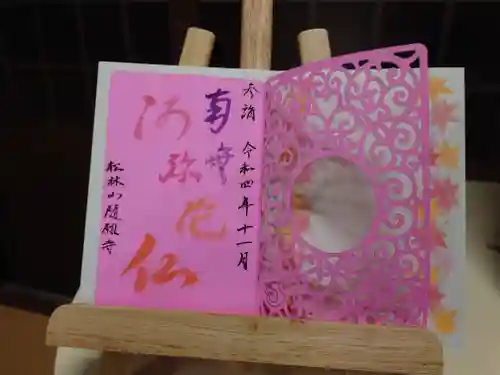 奉詣 令和四年十一月
南無
阿弥陀仏
松林山隨願寺